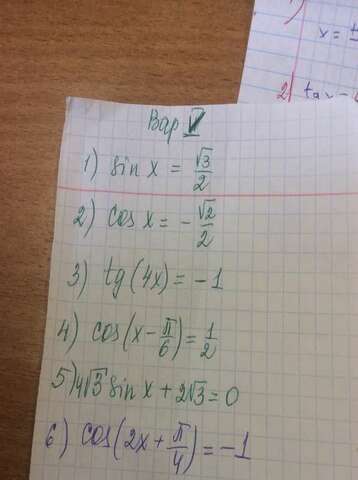 Вар V
1) sin x = √3/2
2) cos x = - √2/2
3) tg(4x) = -1
4) cos(x - π/6) = 1/2
5) 4√3 sin x + 2√3 = 0
6) cos(2x + π/4) = -1
x =
2) tg x -